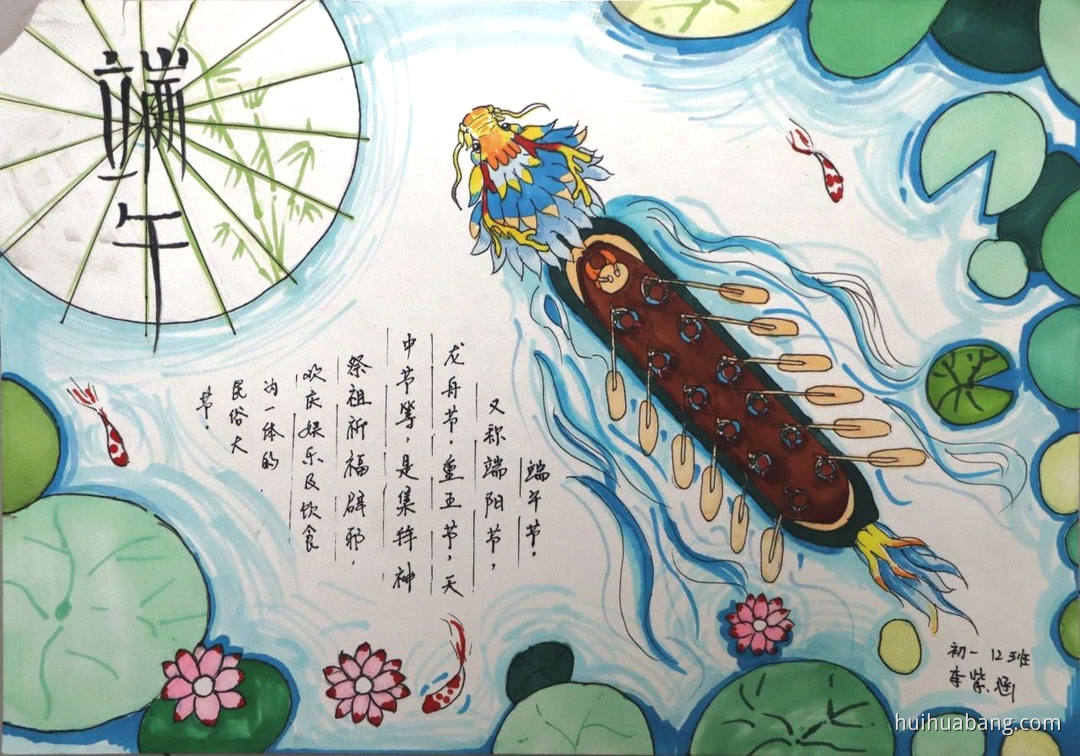 端午
端午节，
又称端阳节，
龙舟节，重五节，天
中节等，是集拜神
祭祖祈福辟邪，
欢庆娱乐及饮食
为一体的
民俗大
节。
初一 12班
李紫涵
huihuabang.com